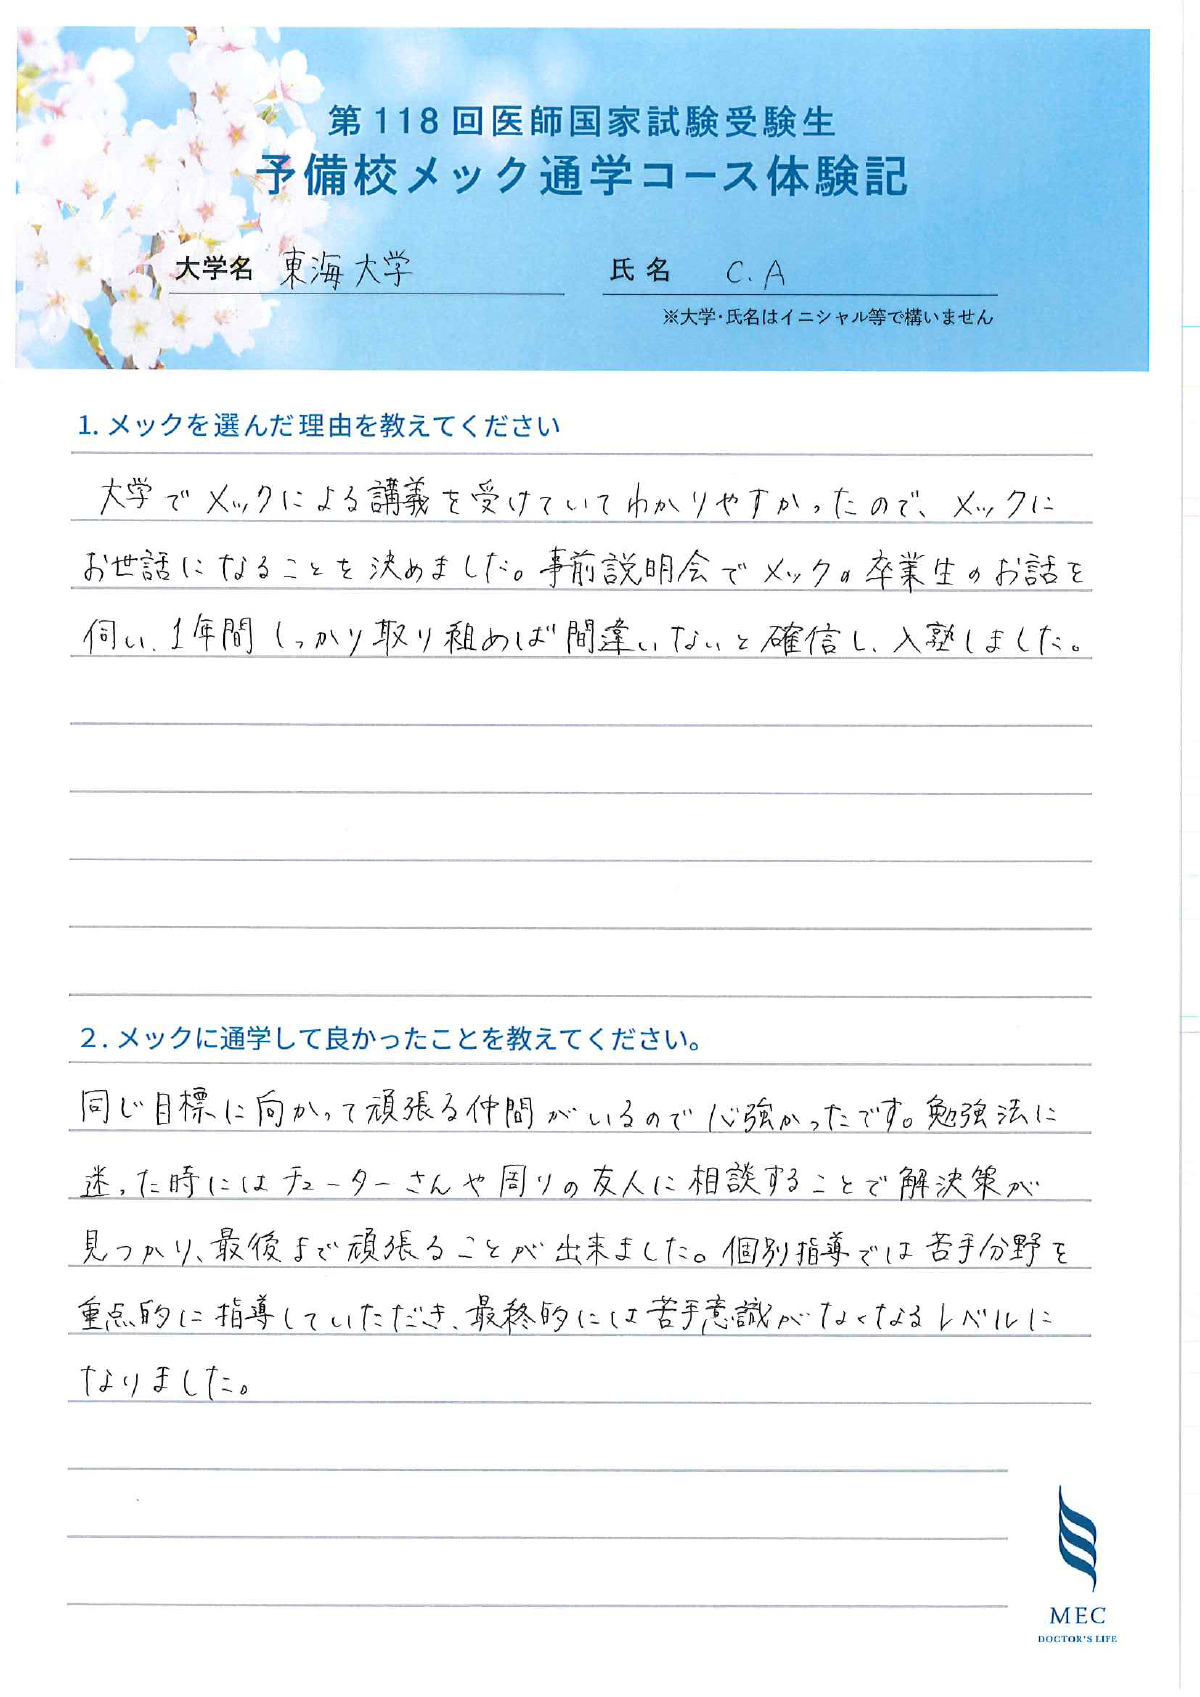 第118回医師国家試験受験生
予備校メック通学コース体験記
大学名 東海大学 氏名 C.A
※大学・氏名はイニシャル等で構いません
1. メックを選んだ理由を教えてください
大学でメックによる講義を受けていてわかりやすかったので、メックに
お世話になることを決めました。事前説明会でメックの卒業生のお話を
伺い、1年間しっかり取り組めば間違いないと確信し、入塾しました。
2. メックに通学して良かったことを教えてください。
同じ目標に向かって頑張る仲間がいるので心強かったです。勉強法に
迷った時にはチューターさんや周りの友人に相談することで解決策が
見つかり、最後まで頑張ることが出来ました。個別指導では苦手分野を
重点的に指導していただき、最終的には苦手意識がなくなるレベルに
なりました。
MEC
DOCTOR'S LIFE